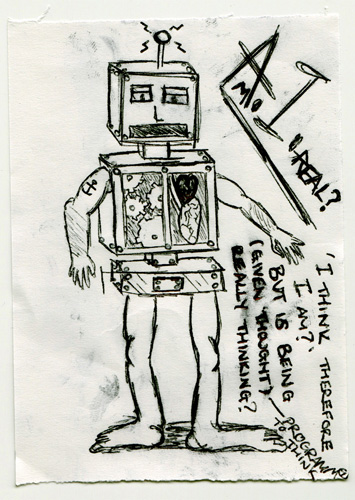 AM I
REAL?
'I THINK THEREFORE
I AM?'
BUT IS BEING
(GIVEN THOUGHT)
REALLY THINKING?
— PROGRAMMED
TO THINK